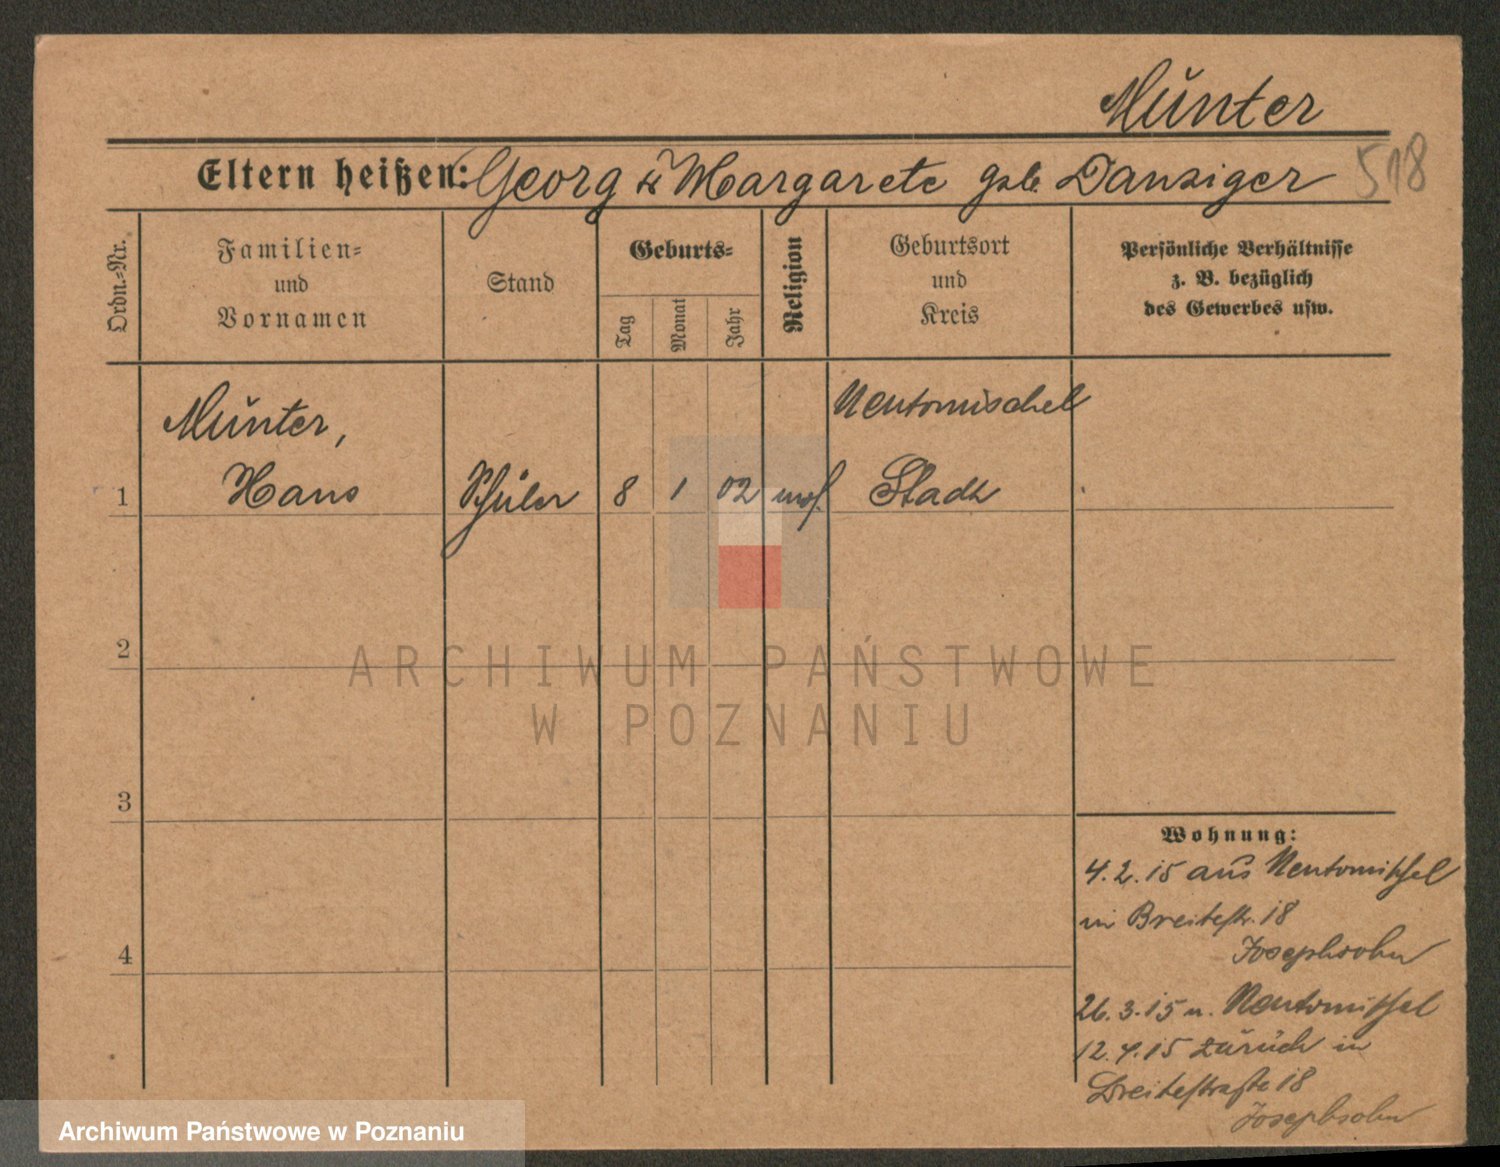 Munter
Eltern heißen: Georg u Margarete geb Danziger 518
Ordn.-Nr.
Familien-
und
Vornamen
Stand
Geburts-
Tag
Monat
Jahr
Religion
Geburtsort
und
Kreis
Persönliche Verhältnisse
z. B. bezüglich
des Gewerbes usw.
Munter,
Neutomischel
1 Hans Schüler 8 1 02 mos. Stadt
2
3
4
Wohnung:
4.2.15 aus Neutomischel
in Breitestr. 18
Josephsohn
26.3.15 n. Neutomischel
12.4.15 zurück in
Breitestraße 18
Josephsohn
ARCHIWUM PAŃSTWOWE
W POZNANIU
Archiwum Państwowe w Poznaniu